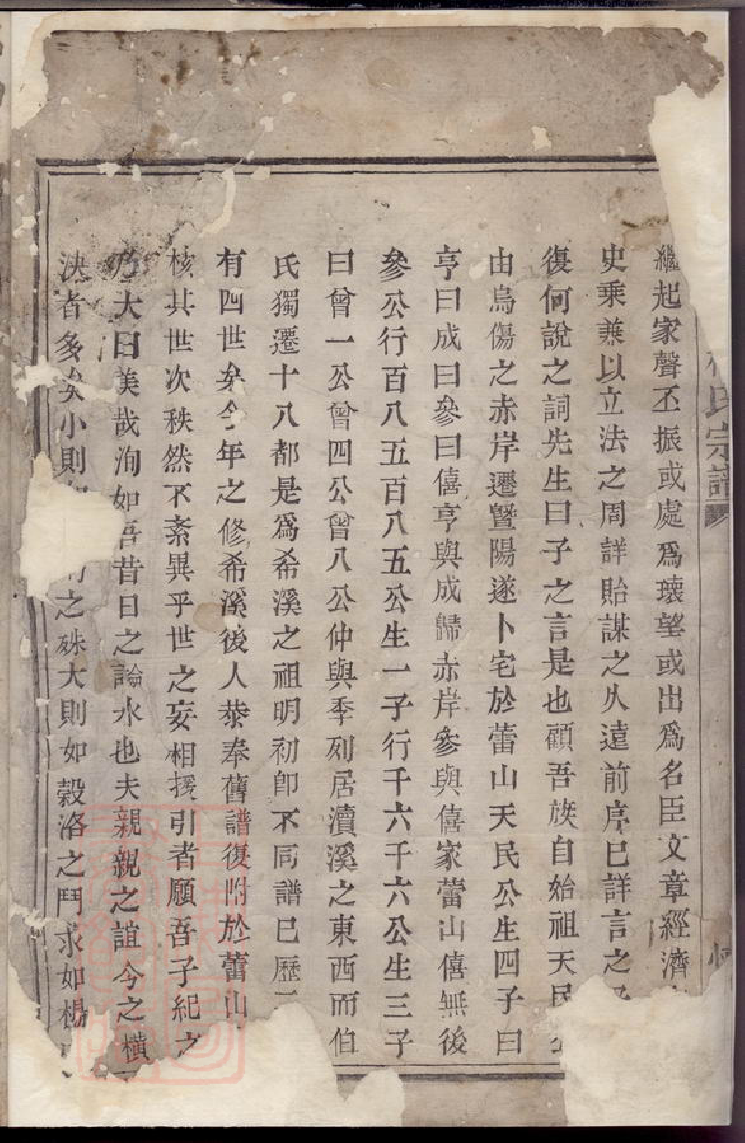 氏宗譜
繼起家聲丕振或處爲瓌望或出爲名臣文章經濟
史乘兼以立法之周詳貽謀之久遠前序已詳言之
復何說之詞先生曰子之言是也顧吾族自始祖天民公
由烏傷之赤岸遷暨陽遂卜宅於蕾山天民公生四子曰
亨曰成曰參曰僖亨與成歸赤岸參與僖家蕾山僖無後
參公行百八五百八五公生一子行千六千六公生三子
曰曾一公曾四公曾八公仲與季列居瀆溪之東西而伯
氏獨遷十八都是爲希溪之祖明初卽不同譜已歷
有四世矣今年之修希溪後人恭奉舊譜復附於蕾山
核其世次秩然不紊異乎世之妄相援引者願吾子紀之
乃大曰美哉洵如吾昔日之論水也夫親親之誼今之橫
決者多矣小則之殊大則如穀洛之鬥求如楊